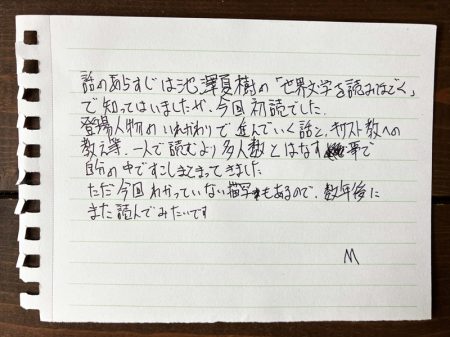 話のあらすじは池澤夏樹の「世界文学を読みほどく」
で知ってはいましたが、今回初読でした。
登場人物のいれかわりで進んでいく話と、キリスト教への
教え等、一人で読むより多人数とはなす事で
自分の中ですこしまとまってきました
ただ今回わかっていない描写もあるので、数年後に
また読んでみたいです
M